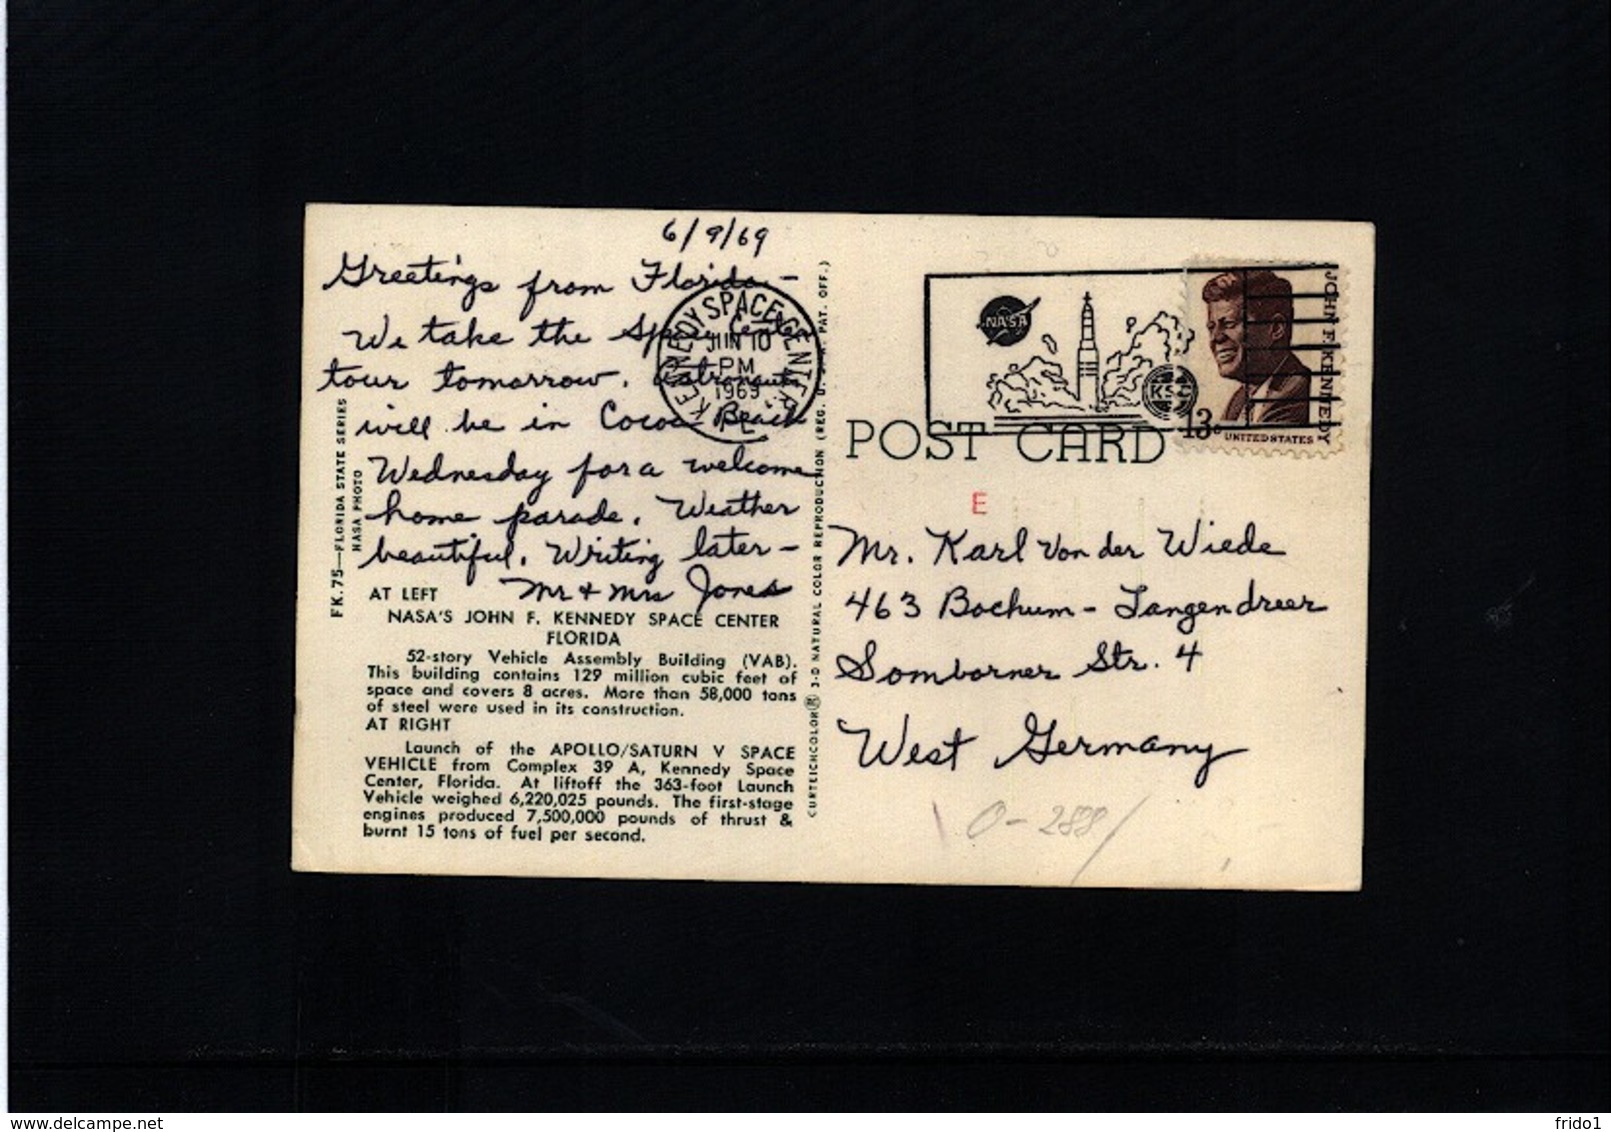 6/9/69
Greetings from Florida -
We take the Space Center
tour tomorrow. Astronauts
will be in Cocoa Beach
Wednesday for a welcome
home parade. Weather
beautiful. Writing later -
Mr & Mrs Jones
KENNEDY SPACE CENTER
JUN 10
PM
1969
FK.75—FLORIDA STATE SERIES
NASA PHOTO
AT LEFT
NASA'S JOHN F. KENNEDY SPACE CENTER
FLORIDA
52-story Vehicle Assembly Building (VAB).
This building contains 129 million cubic feet of
space and covers 8 acres. More than 58,000 tons
of steel were used in its construction.
AT RIGHT
Launch of the APOLLO/SATURN V SPACE
VEHICLE from Complex 39 A, Kennedy Space
Center, Florida. At liftoff the 363-foot Launch
Vehicle weighed 6,220,025 pounds. The first-stage
engines produced 7,500,000 pounds of thrust &
burnt 15 tons of fuel per second.
CURTEICHCOLOR® 3-D NATURAL COLOR REPRODUCTION (REG. U. S. A. PAT. OFF.)
NASA
KSC
JOHN F. KENNEDY
13c
UNITED STATES
POST CARD
E
Mr. Karl Von der Wiede
463 Bochum - Langendreer
Somborner Str. 4
West Germany
0-288/
delcampe.net
frido1